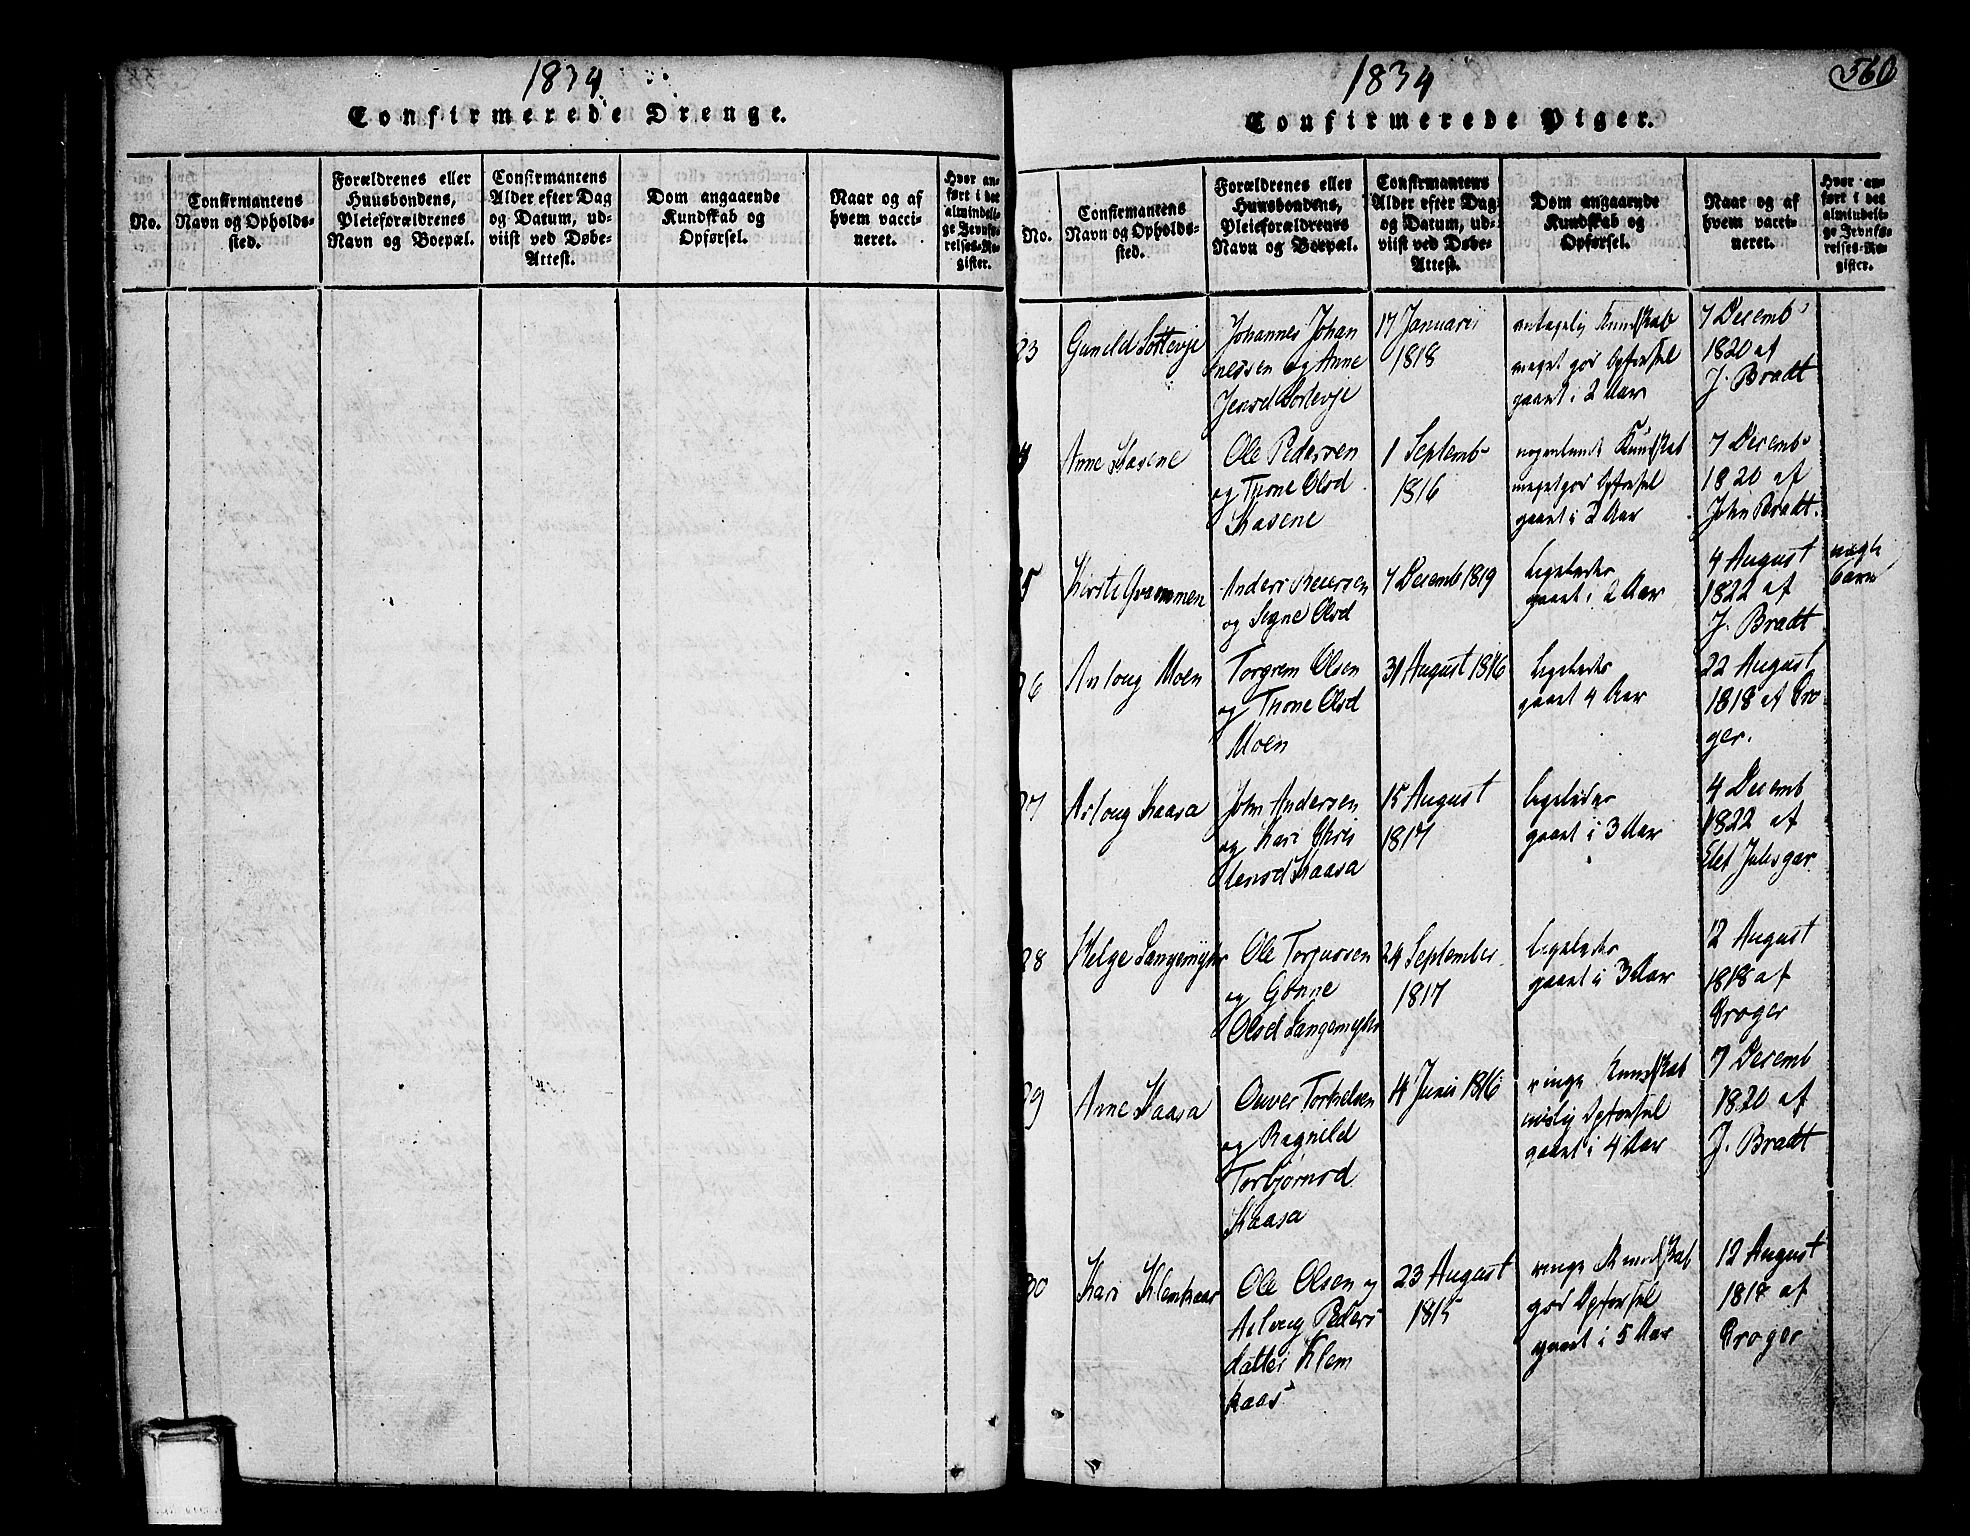 1834
Confirmerede Drenge.
No.
Confirmantens
Navn og Opholds-
sted.
Forældrenes eller
Huusbondens,
Pleieforældrenes
Navn og Boepæl.
Confirmantens
Alder efter Dag
og Datum, ud-
viist ved Døbe-
Attest.
Dom angaaende
Kundskab og
Opførsel.
Naar og af
hvem vacci-
neret.
Hvor an-
ført i det
almindeli-
ge Jevnfø-
relses-Re-
gister.
1834
560
Confirmerede Piger.
No.
Confirmantens
Navn og Opholds-
sted.
Forældrenes eller
Huusbondens,
Pleieforældrenes
Navn og Boepæl.
Confirmantens
Alder efter Dag
og Datum, ud-
viist ved Døbe-
Attest.
Dom angaaende
Kundskab og
Opførsel.
Naar og af
hvem vacci-
neret.
Hvor an-
ført i det
almindeli-
ge Jevnfø-
relses-Re-
gister.
23
Guneld
Johannes Johan
nessen og Anne
Jensd
17 Januari
1818
antagelig Kundskab
meget god Opførsel
gaaet i 2 Aar
7 Decemb
1820 af
J. Bradt
Anne Kasene
Ole Pedersen
og Thone Olsd
Kasene
1 Septemb
1816
nogenlunde Kundskab
meget god Opførsel
gaaet i 2 Aar
7 Decemb
1820 af
John Bradt.
25
Kirsti Grammen
Anders
og Signe Olsd
7 Decemb 1819
ligeledes
gaaet i 2 Aar
4 August
1822 af
J. Bradt
uægte
barn
26
Asloug Moen
Torgrem Olsen
og Thone Olsd
Moen
31 August 1816
ligeledes
gaaet 4 Aar
22 August
1818 af Cro
ger.
27
Asloug Kaasa
John Andersen
og Kari Chris
tensd Kaasa
15 August
1817
ligeledes
gaaet i 3 Aar
4 Decemb
1822 af
28
Helge Langemyhr
Ole Torjussen
og Gonne
Olsd Langemyhr
24 September
1817
ligeledes
gaaet i 3 Aar
12 August
1818 af
Croger
29
Anne Kaasa
Ouver Torkelsen
og Ragnild
Torbjørnsd
Kaasa
14 Junii 1816
ringe Kundskab
Opførsel
gaaet i 4 Aar
7 Decemb
1820 af
J. Bradt
30
Kari Klemkaas
Ole Olsen og
Asloug Peders
datter Klem
kaas
23 August
1815
ringe Kundskab
god Opførsel
gaaet i 5 Aar
12 August
1818 af
Croger